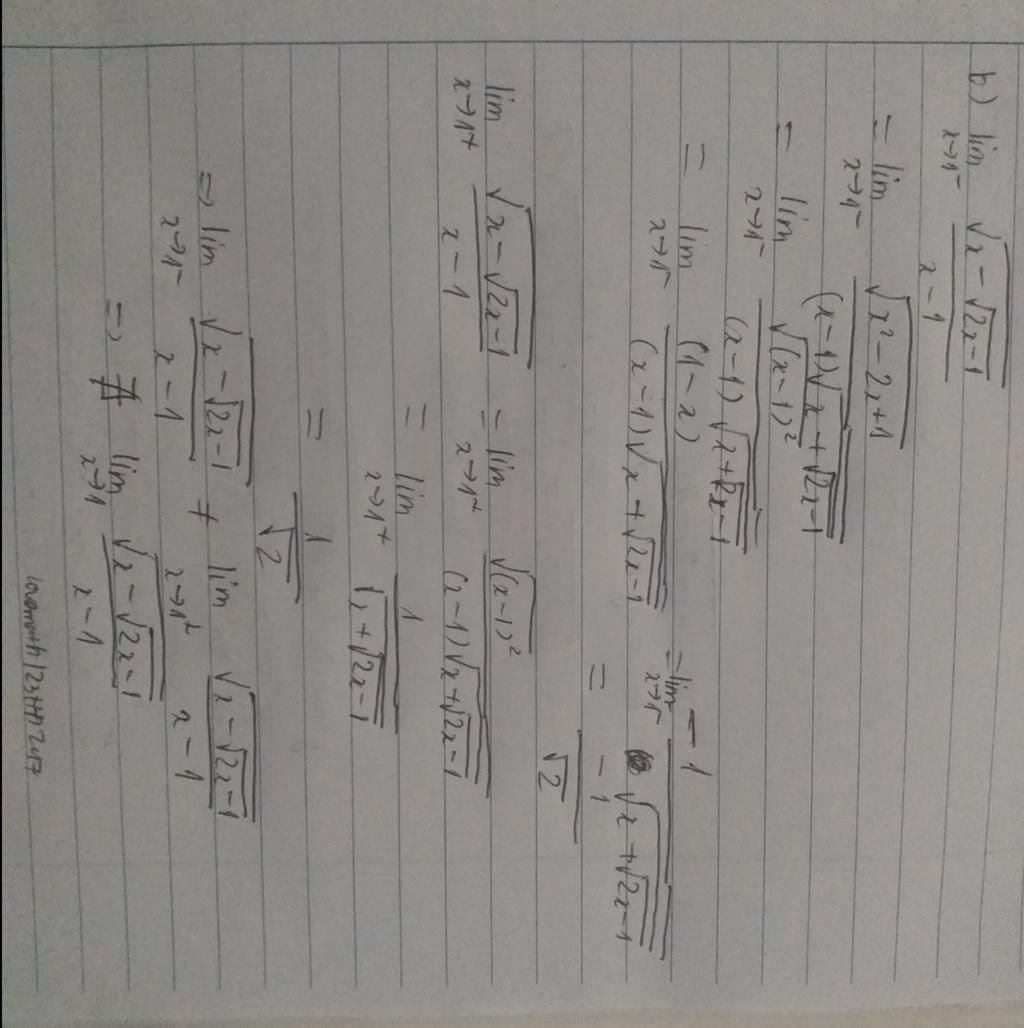 b) lim x→1⁻ √(x − √(2x−1)) / (x − 1)
= lim x→1⁻ √(x² − 2x + 1) / ((x−1)√(x + √(2x−1)))
= lim x→1⁻ √((x−1)²) / ((x−1)√(x + √(2x−1)))
= lim x→1⁻ (1−x) / ((x−1)√(x + √(2x−1))) = lim x→1⁻ −1 / √(x + √(2x−1))
= −1/√2
lim x→1⁺ √(x − √(2x−1)) / (x−1) = lim x→1⁺ √((x−1)²) / ((x−1)√(x + √(2x−1)))
= lim x→1⁺ 1 / √(x + √(2x−1))
= 1/√2
=> lim x→1⁻ √(x − √(2x−1)) / (x−1) ≠ lim x→1⁺ √(x − √(2x−1)) / (x−1)
=> ∄ lim x→1 √(x − √(2x−1)) / (x−1)